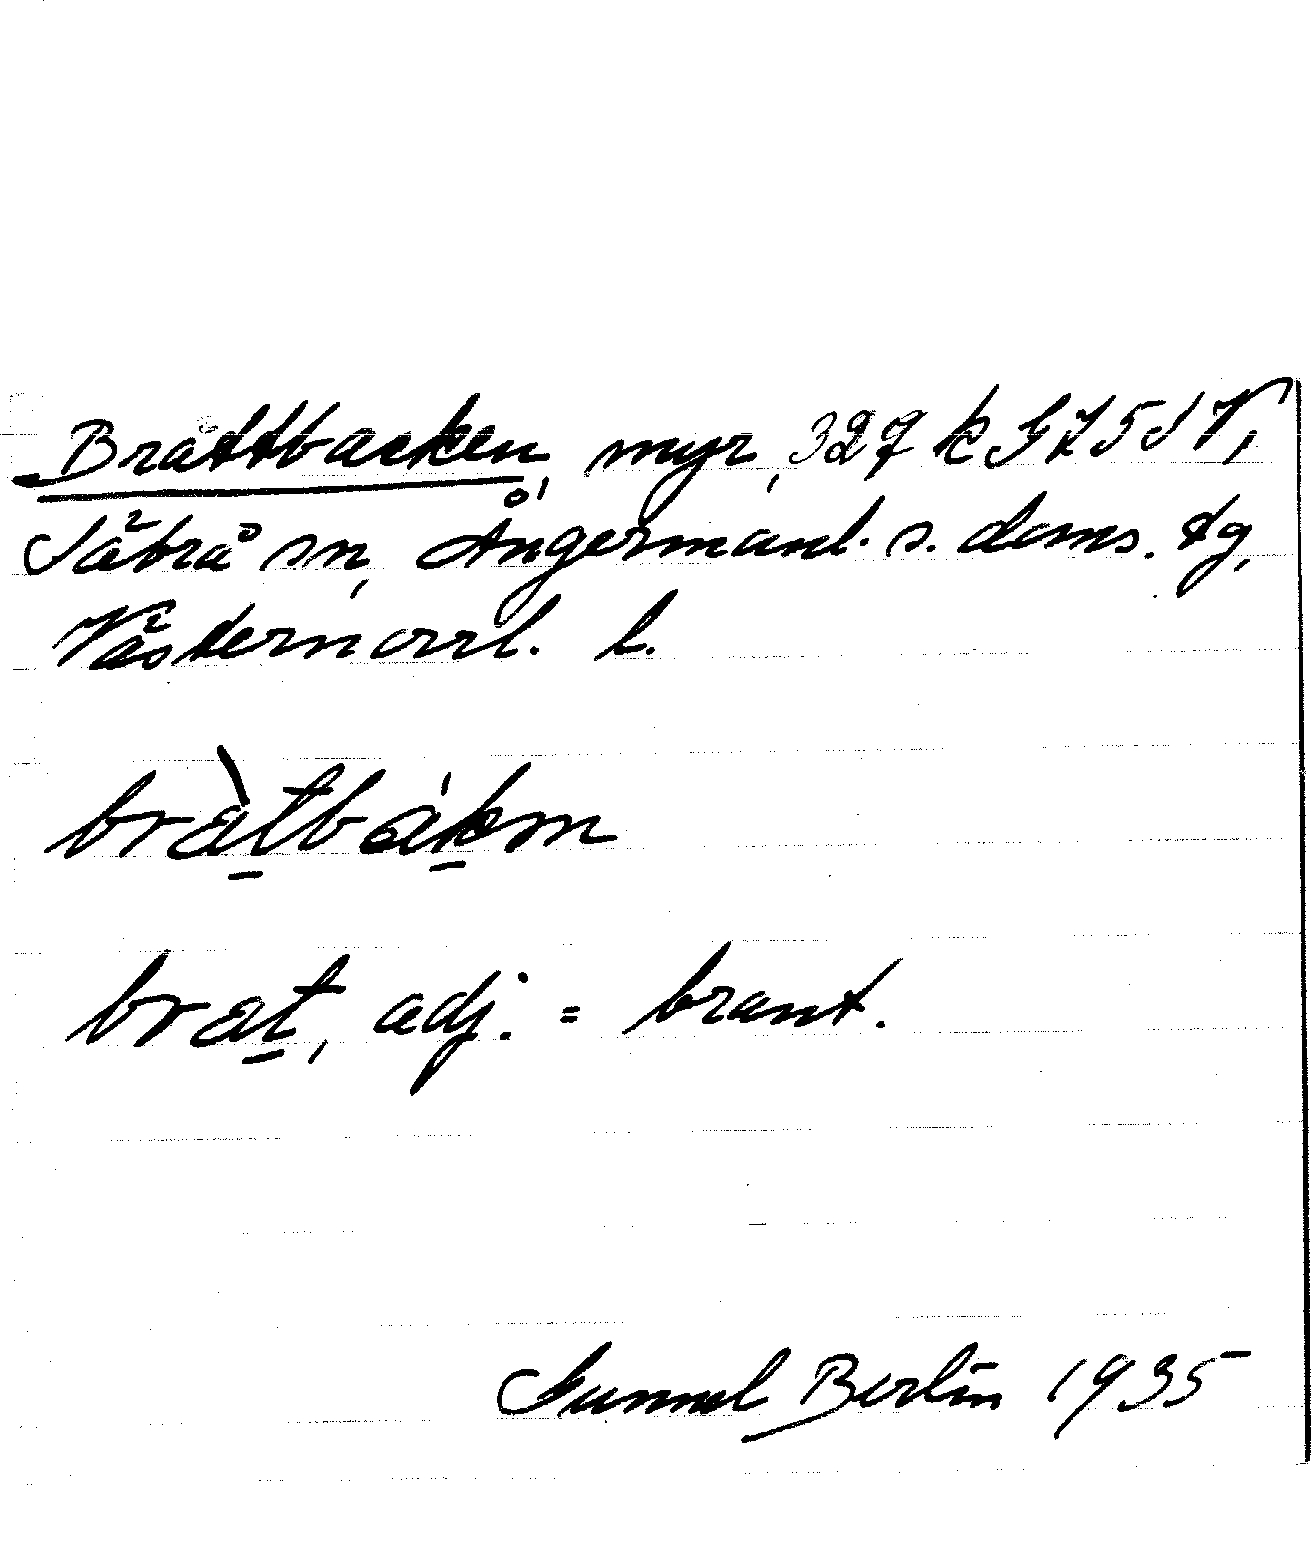 Brattbacken, myr, 327 k G 7 5 d V,
Säbrå sn, Ångermanl. s. doms. tg,
Västernorrl. l.
bràtbákm
brat, adj. = brant.
Gunnel Berlin 1935